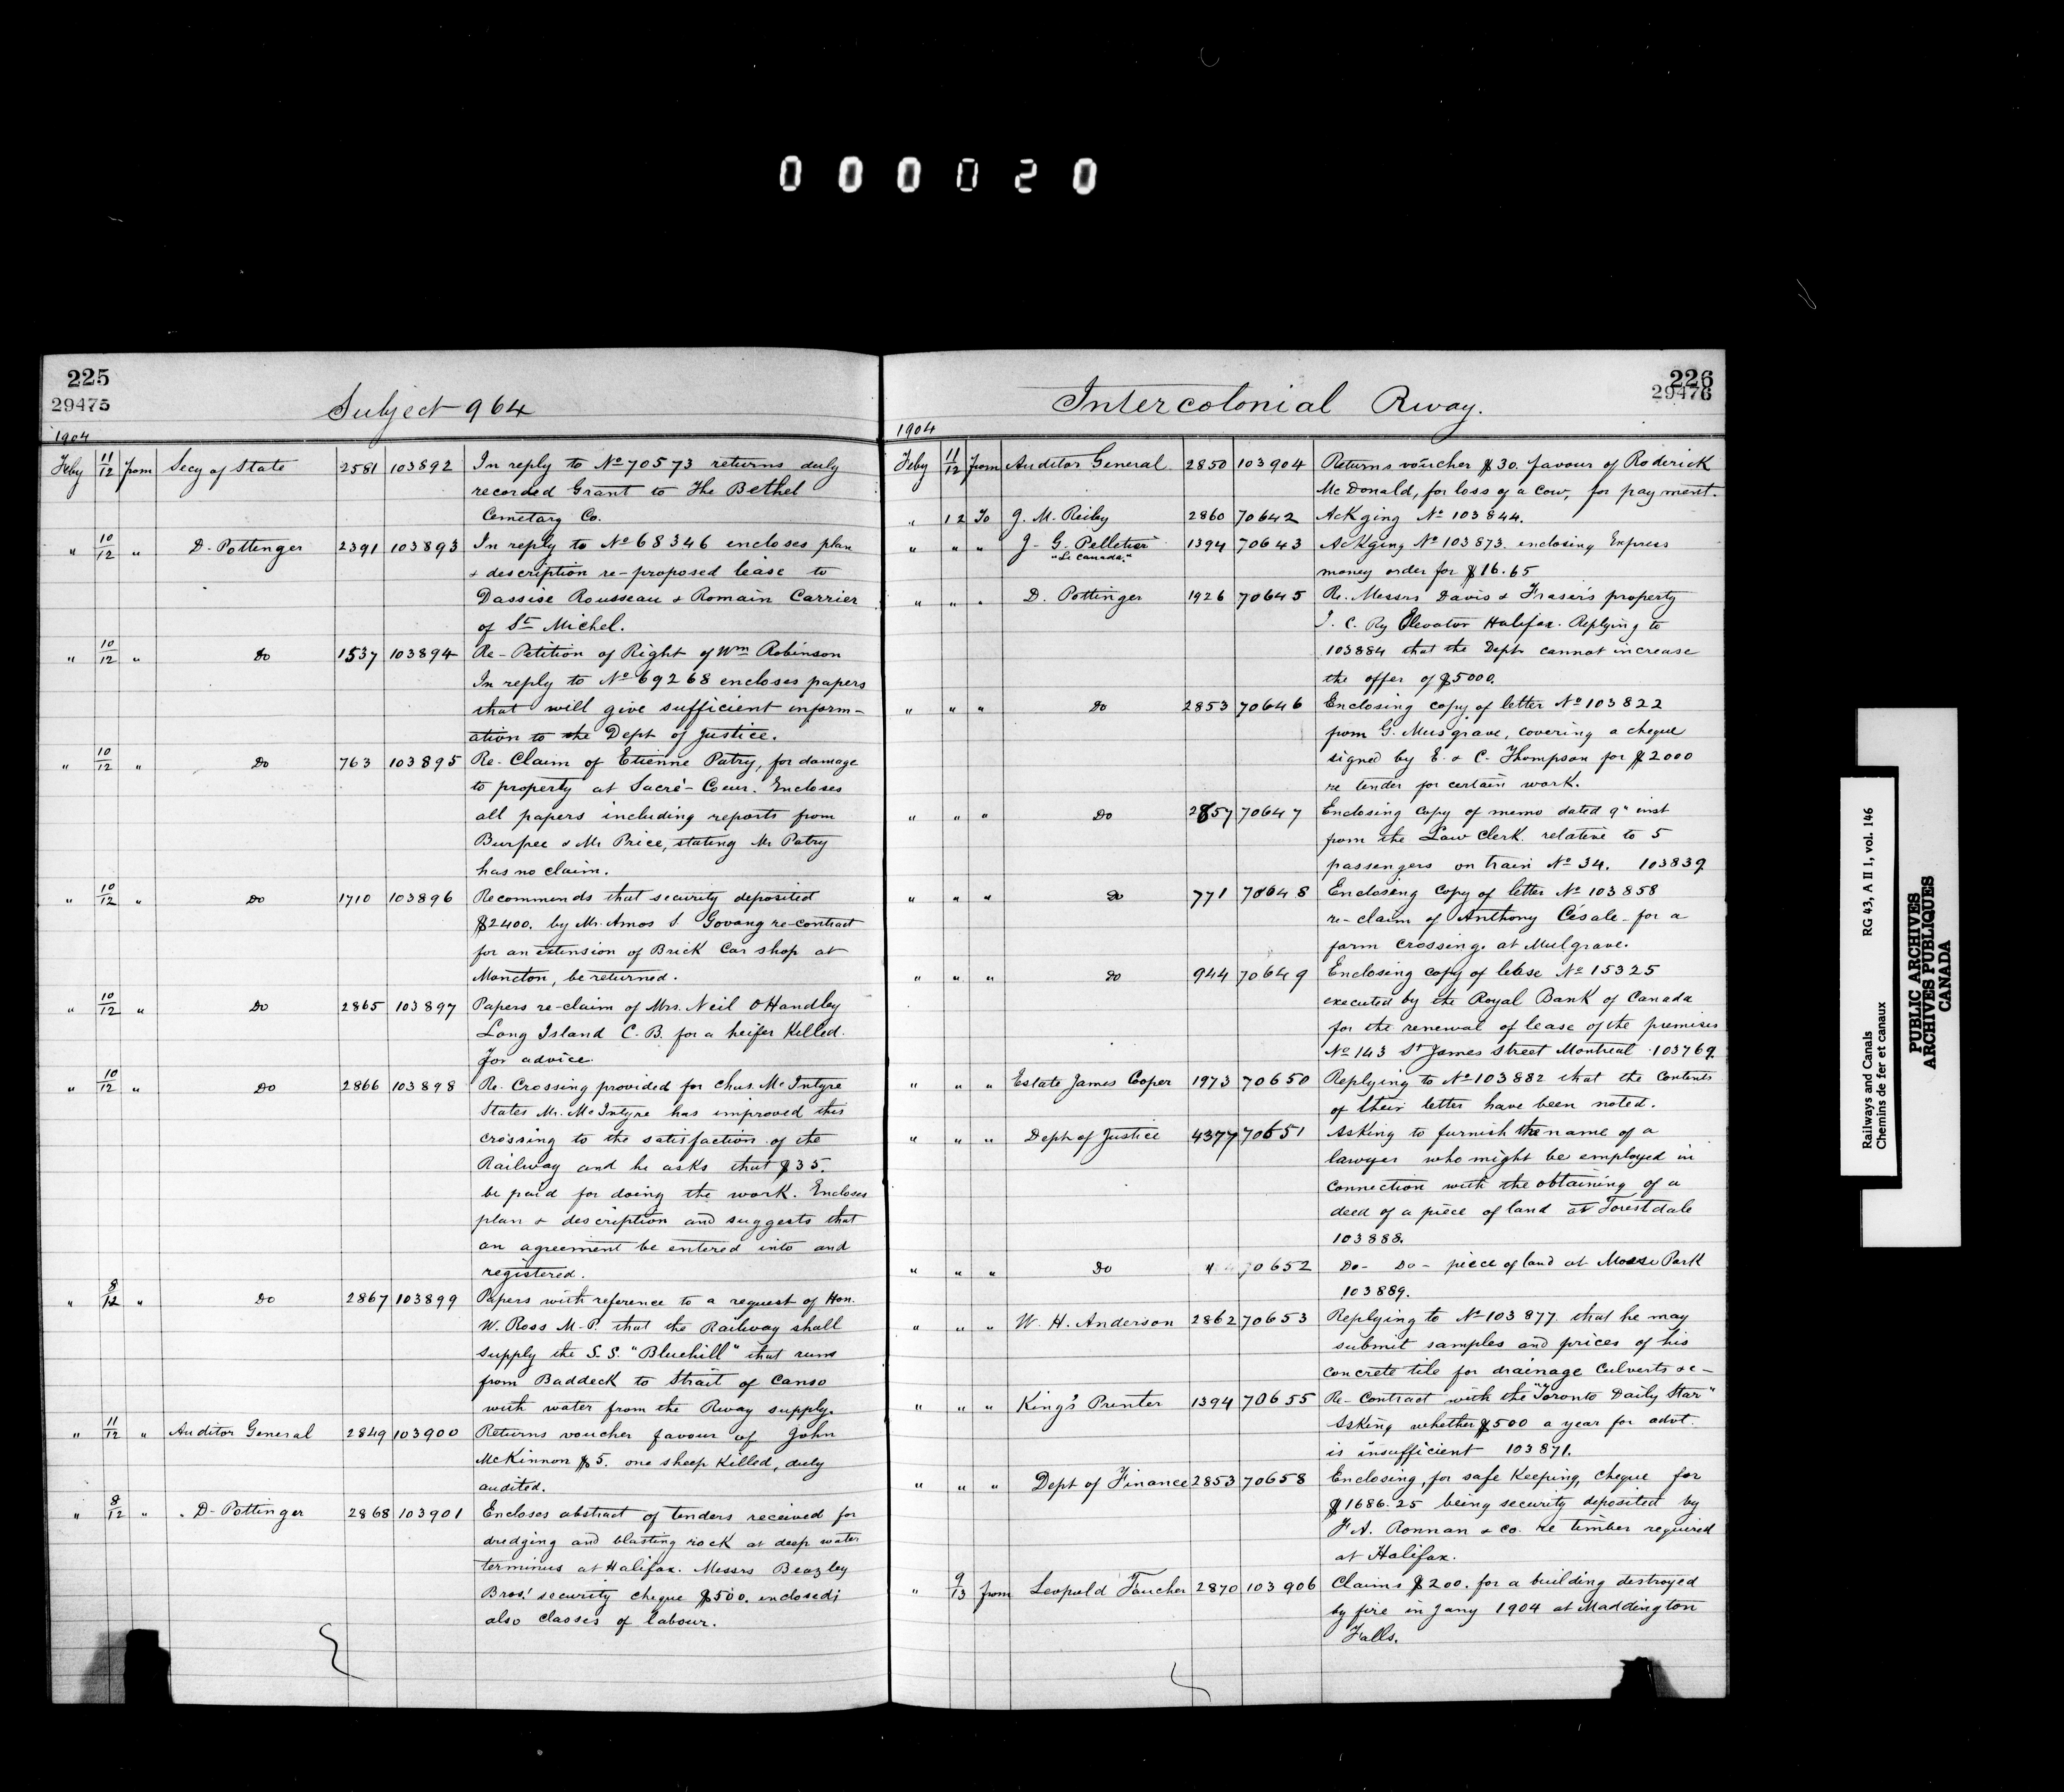 000020
225
29475
Subject 964
1904
Feby 11/12 from Secy of State 2581 103892 In reply to No 70573 returns duly
recorded Grant to The Bethel
Cemetary Co.
" 10/12 " D. Pottinger 2391 103893 In reply to No 68346 encloses plan
& description re-proposed lease to
Dassise Rousseau & Romain Carrier
of St Michel.
" 10/12 " Do 1537 103894 Re-Petition of Right of Wm Robinson
In reply to No 69268 encloses papers
that will give sufficient inform-
ation to the Dept of Justice.
" 10/12 " Do 763 103895 Re-Claim of Etienne Patry, for damage
to property at Sacré-Coeur. Encloses
all papers including reports from
Burpee & Mr Price, stating Mr Patry
has no claim.
" 10/12 " Do 1710 103896 Recommends that security deposited
$2400. by Mr. Amos S Govang re-contract
for an extension of Brick Car shop at
Moncton, be returned.
" 10/12 " Do 2865 103897 Papers re-claim of Mrs. Neil O'Handley
Long Island C.B. for a heifer killed.
For advice.
" 10/12 " Do 2866 103898 Re-Crossing provided for Chas. McIntyre
States Mr. McIntyre has improved this
crossing to the satisfaction of the
Railway and he asks that $35.
be paid for doing the work. Encloses
plan & description and suggests that
an agreement be entered into and
registered.
" 8/12 " Do 2867 103899 Papers with reference to a request of Hon.
W. Ross M.P. that the Railway shall
supply the S.S. "Bluehill" that runs
from Baddeck to Strait of Canso
with water from the Rway supply.
" 11/12 " Auditor General 2849 103900 Returns voucher favour of John
McKinnon $5. one sheep killed, duly
audited.
" 8/12 " D. Pottinger 2868 103901 Encloses abstract of tenders received for
dredging and blasting rock at deep water
terminus at Halifax. Messrs Beazley
Bros! security cheque $500. enclosed;
also classes of labour.
226
29476
Intercolonial Rway.
1904
Feby 11/12 from Auditor General 2850 103904 Returns voucher $30. favour of Roderick
McDonald, for loss of a cow, for payment.
" 12 To J. M. Reiby 2860 70642 Ackging No 103844.
" " " J. G. Pelletier 1394 70643 Ackging No 103873. enclosing Express
"Le Canada." money order for $16.65
" " " D. Pottinger 1926 70645 Re. Messrs Davis & Fraser's property
I. C. Ry Elevator Halifax. Replying to
103884 that the Dept cannot increase
the offer of $5000.
" " " Do 2853 70646 Enclosing copy of letter No 103822
from G. Musgrave, covering a cheque
signed by E. & C. Thompson for $2000
re tender for certain work.
" " " Do 2857 70647 Enclosing copy of memo dated 9" inst
from the Law Clerk. relative to 5
passengers on train No 34. 103839
" " " Do 771 70648 Enclosing copy of letter No 103858
re-claim of Anthony Césale-for a
farm crossing. at Mulgrave.
" " " Do 944 70649 Enclosing copy of lease No 15325
executed by the Royal Bank of Canada
for the renewal of lease of the premises
No 143 St James Street Montreal 103769
" " " Estate James Cooper 1973 70650 Replying to No 103882 that the contents
of their letter have been noted.
" " " Dept of Justice 4377 70651 Asking to furnish the name of a
lawyer who might be employed in
connection with the obtaining of a
deed of a piece of land at Forestdale
103888.
" " " Do " 70652 Do- Do- piece of land at Moose Park
103889.
" " " W. H. Anderson 2862 70653 Replying to No 103877. that he may
submit samples and prices of his
concrete tile for drainage Culverts &c-
" " " King's Printer 1394 70655 Re-Contract with the "Toronto Daily Star"
Asking whether $500 a year for advt.
is insufficient 103871.
" " " Dept of Finance 2853 70658 Enclosing, for safe keeping, cheque for
$1686.25 being security deposited by
F.A. Ronnan & Co. re timber required
at Halifax.
" 9/13 from Leopold Faucher 2870 103906 Claims $200. for a building destroyed
by fire in Jany 1904 at Maddington
Falls.
Railways and Canals RG 43, A II 1, vol. 146
Chemins de fer et canaux
PUBLIC ARCHIVES
ARCHIVES PUBLIQUES
CANADA